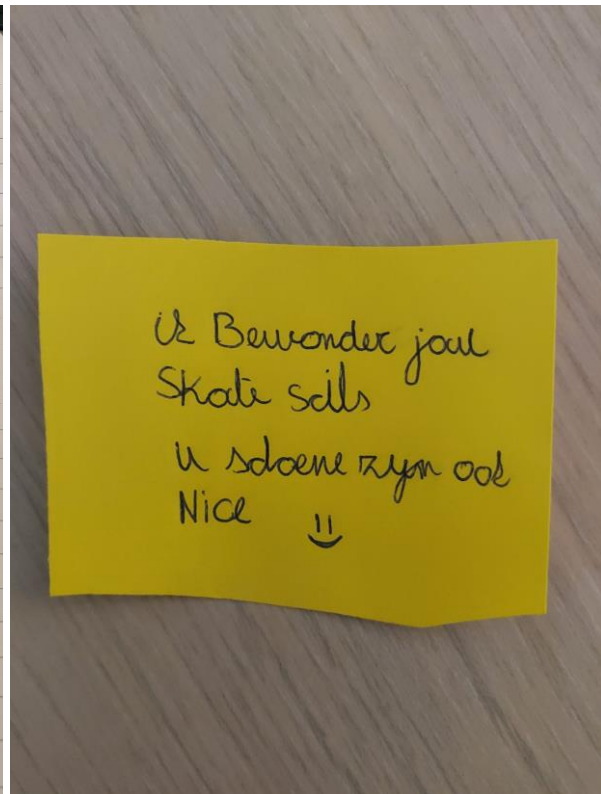 ik Bewonder jouw
Skate scils
u schoene zijn ook
Nice